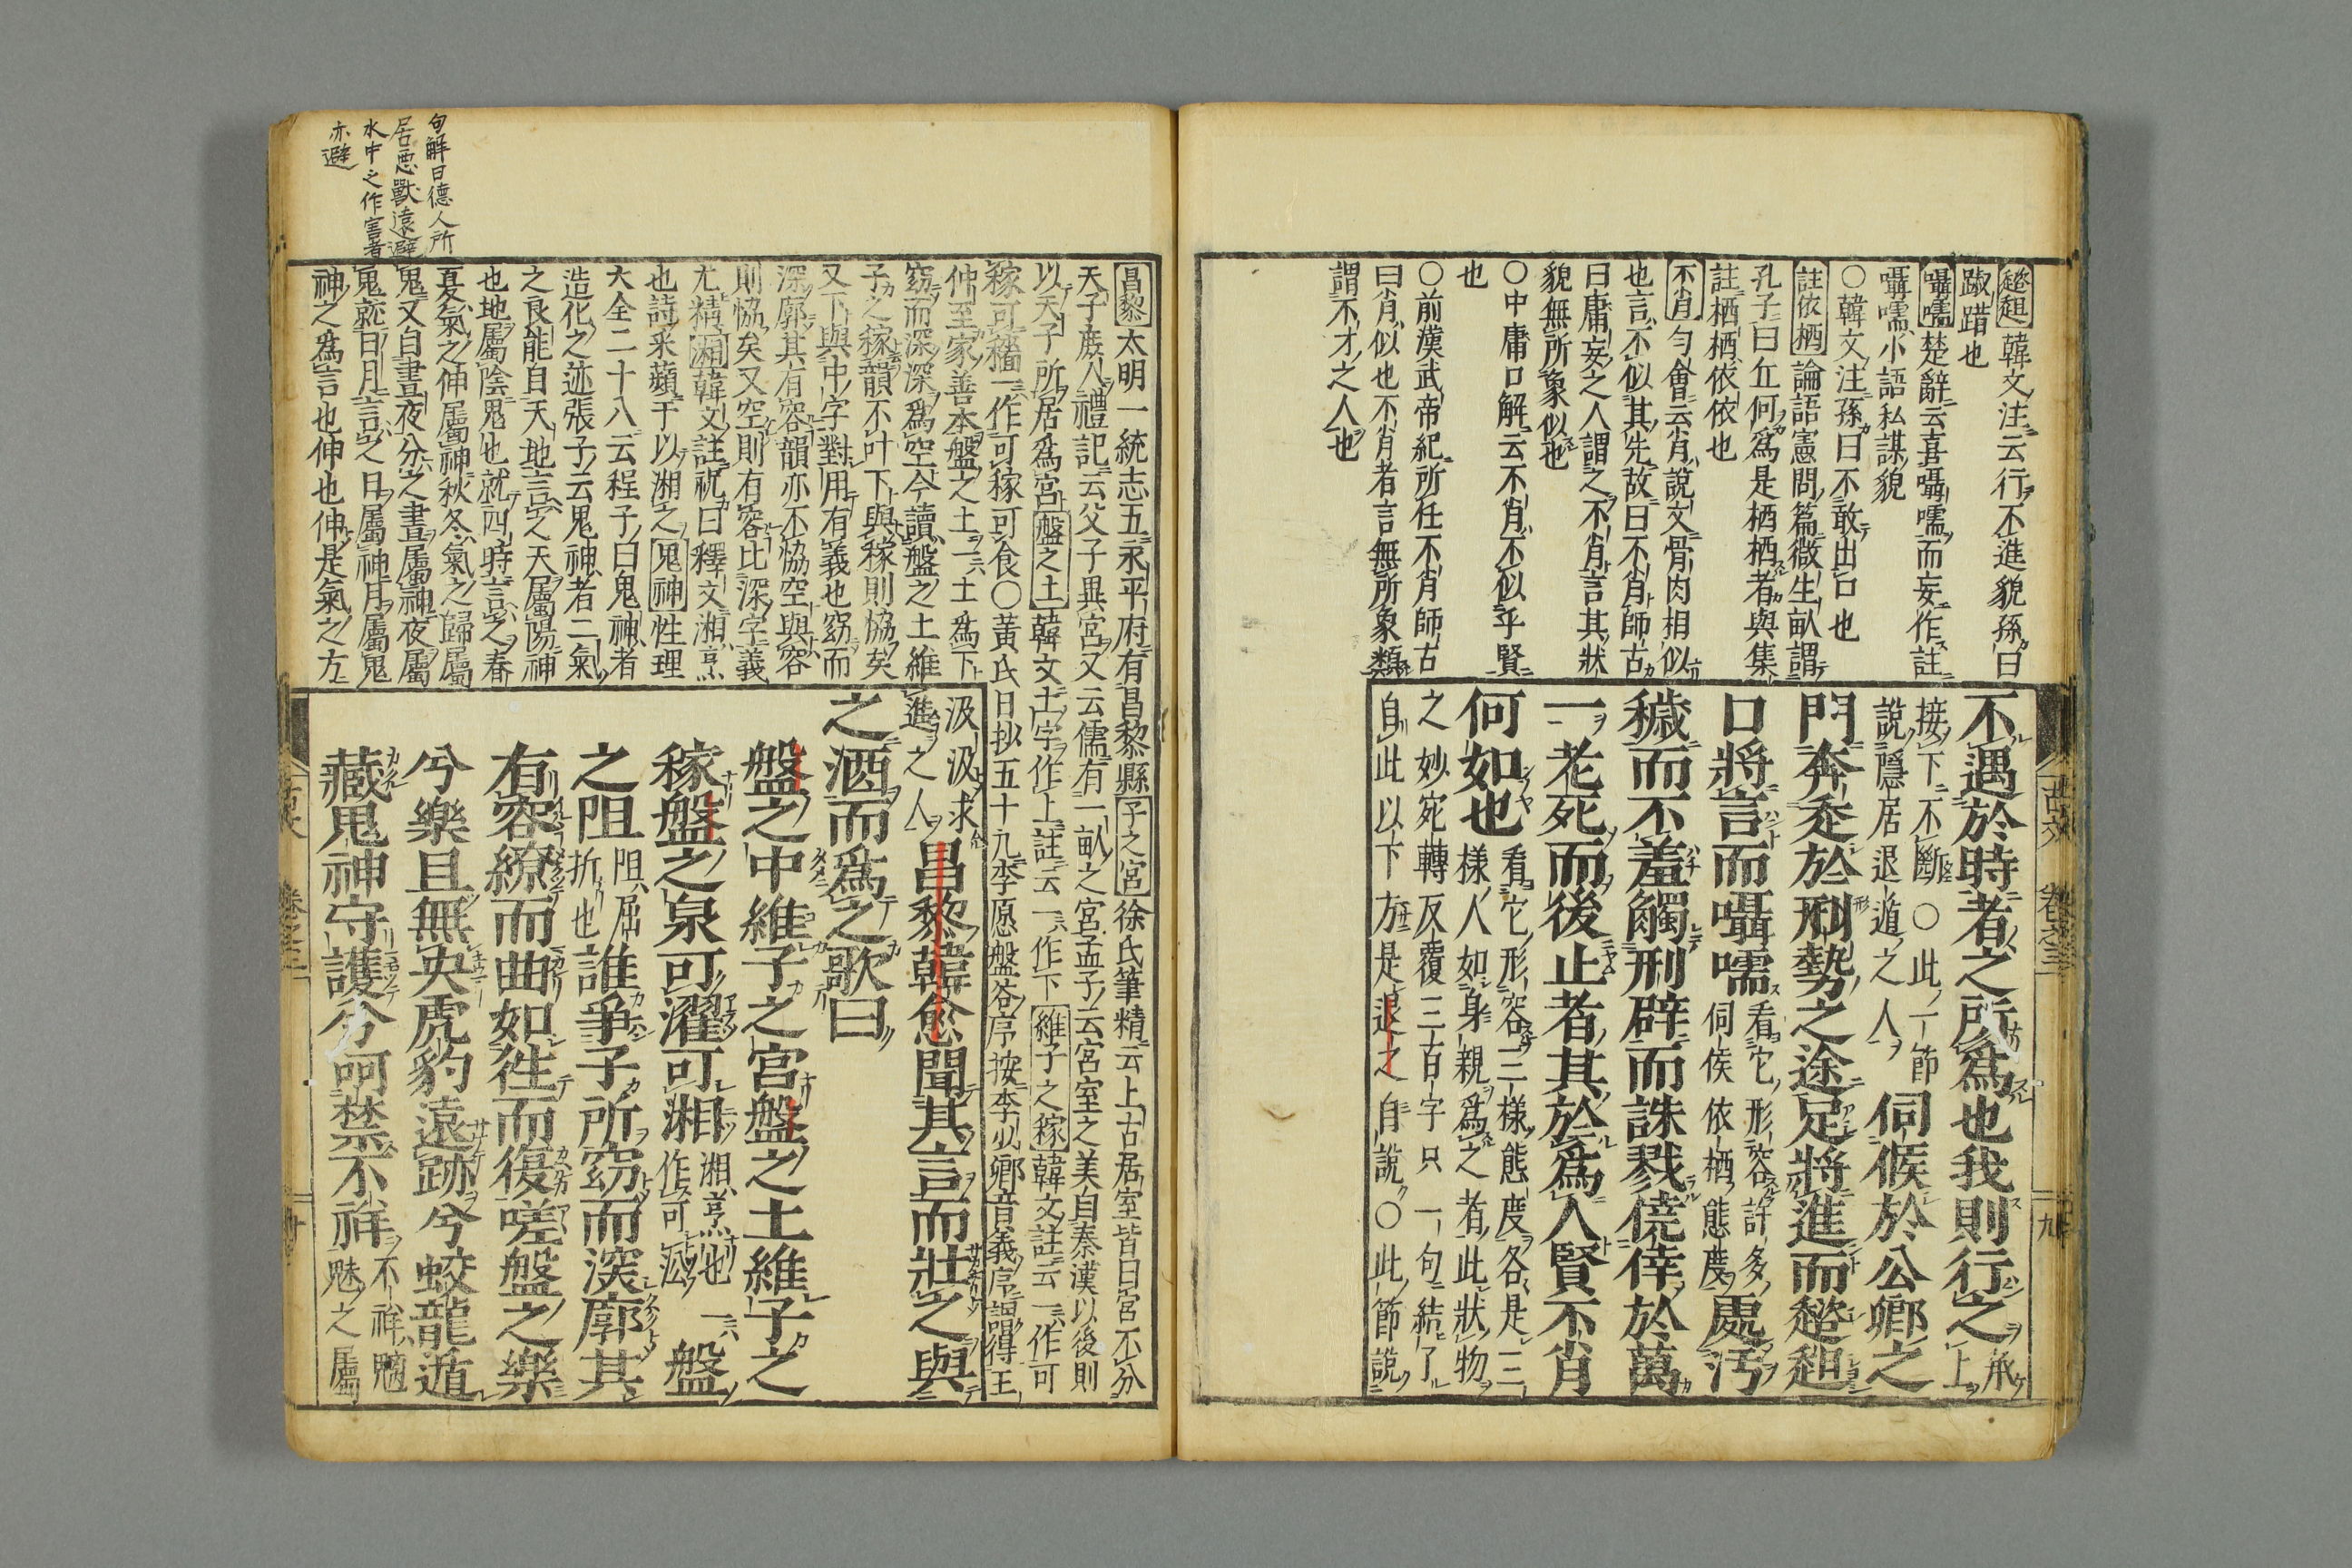 趦趄韓文注云行不進貌孫曰
踧踖也
囁嚅楚辭云喜囁嚅而妄作註
囁嚅小語私謀貌
○韓文注孫曰不敢出口也
註依栖論語憲問篇微生畝謂
孔子曰丘何爲是栖栖者與集
註栖栖依依也
不肖匀會云肖說文骨肉相似
也言不似其先故曰不肖師古
曰庸妄之人謂之不肖言其狀
貌無所象似也
○中庸口解云不肖不似乎賢
也
○前漢武帝紀所任不肖師古
曰肖似也不肖者言無所象類
謂不才之人也
不遇於時者之所爲也我則行之承上
接下不斷○此一節
說隱居退遁之人伺候於公卿之
門奔走於形勢之途足將進而趦趄
口將言而囁嚅看它形容許多
伺侯依栖態度處汚
穢而不羞觸刑辟而誅戮僥倖於萬
一老死而後止者其於爲人賢不肖
何如也看它形容三樣態度各是三
樣人如身親爲之者此狀物
之妙宛轉反覆三百字只一句結了
自此以下方是退之自說○此節說
古文 卷之三 九
昌黎太明一統志五永平府有昌黎縣子之宮徐氏筆精云上古居室皆曰宮不分
天子庶人禮記云父子異宮又云儒有一畝之宮孟子云宮室之美自秦漢以後則
以天子所居爲宮盤之土韓文土字作上註云一作下維子之稼韓文註云一作可
稼可穡一作可稼可食○黃氏日抄五十九李愿盤谷序按李必卿音義序謂得王
仲至家善本盤之土一土爲下
窈而深深爲空今讀盤之土維
子之稼韻不叶下與稼則協矣
又下與中字對用有義也窈而
深廓其有容韻亦不協空與容
則協矣又空則有容比深字義
尤精湘韓文註祝曰釋文湘烹
也詩采蘋于以湘之鬼神性理
大全二十八云程子曰鬼神者
造化之迹張子云鬼神者二氣
之良能自天地言之天屬陽神
也地屬陰鬼也就四時言之春
夏氣之伸屬神秋冬氣之歸屬
鬼又自晝夜分之晝屬神夜屬
鬼就日月言之日屬神月屬鬼
神之爲言也伸也伸是氣之方
句解曰德人所
居悪獸遠避
水中之作害者
亦避
汲汲求
進之人昌黎韓愈聞其言而壯之與
之酒而爲之歌曰
盤之中維子之宮盤之土維子之
稼盤之泉可濯可湘湘烹也一
作可沿盤
之阻阻屈
折也誰爭子所窈而深廓其
有容繚而曲如徃而復嗟盤之樂
兮樂且無央虎豹遠跡兮蛟龍遁
藏鬼神守護兮呵禁不祥不祥魑
魅之屬
古文 卷之三 十